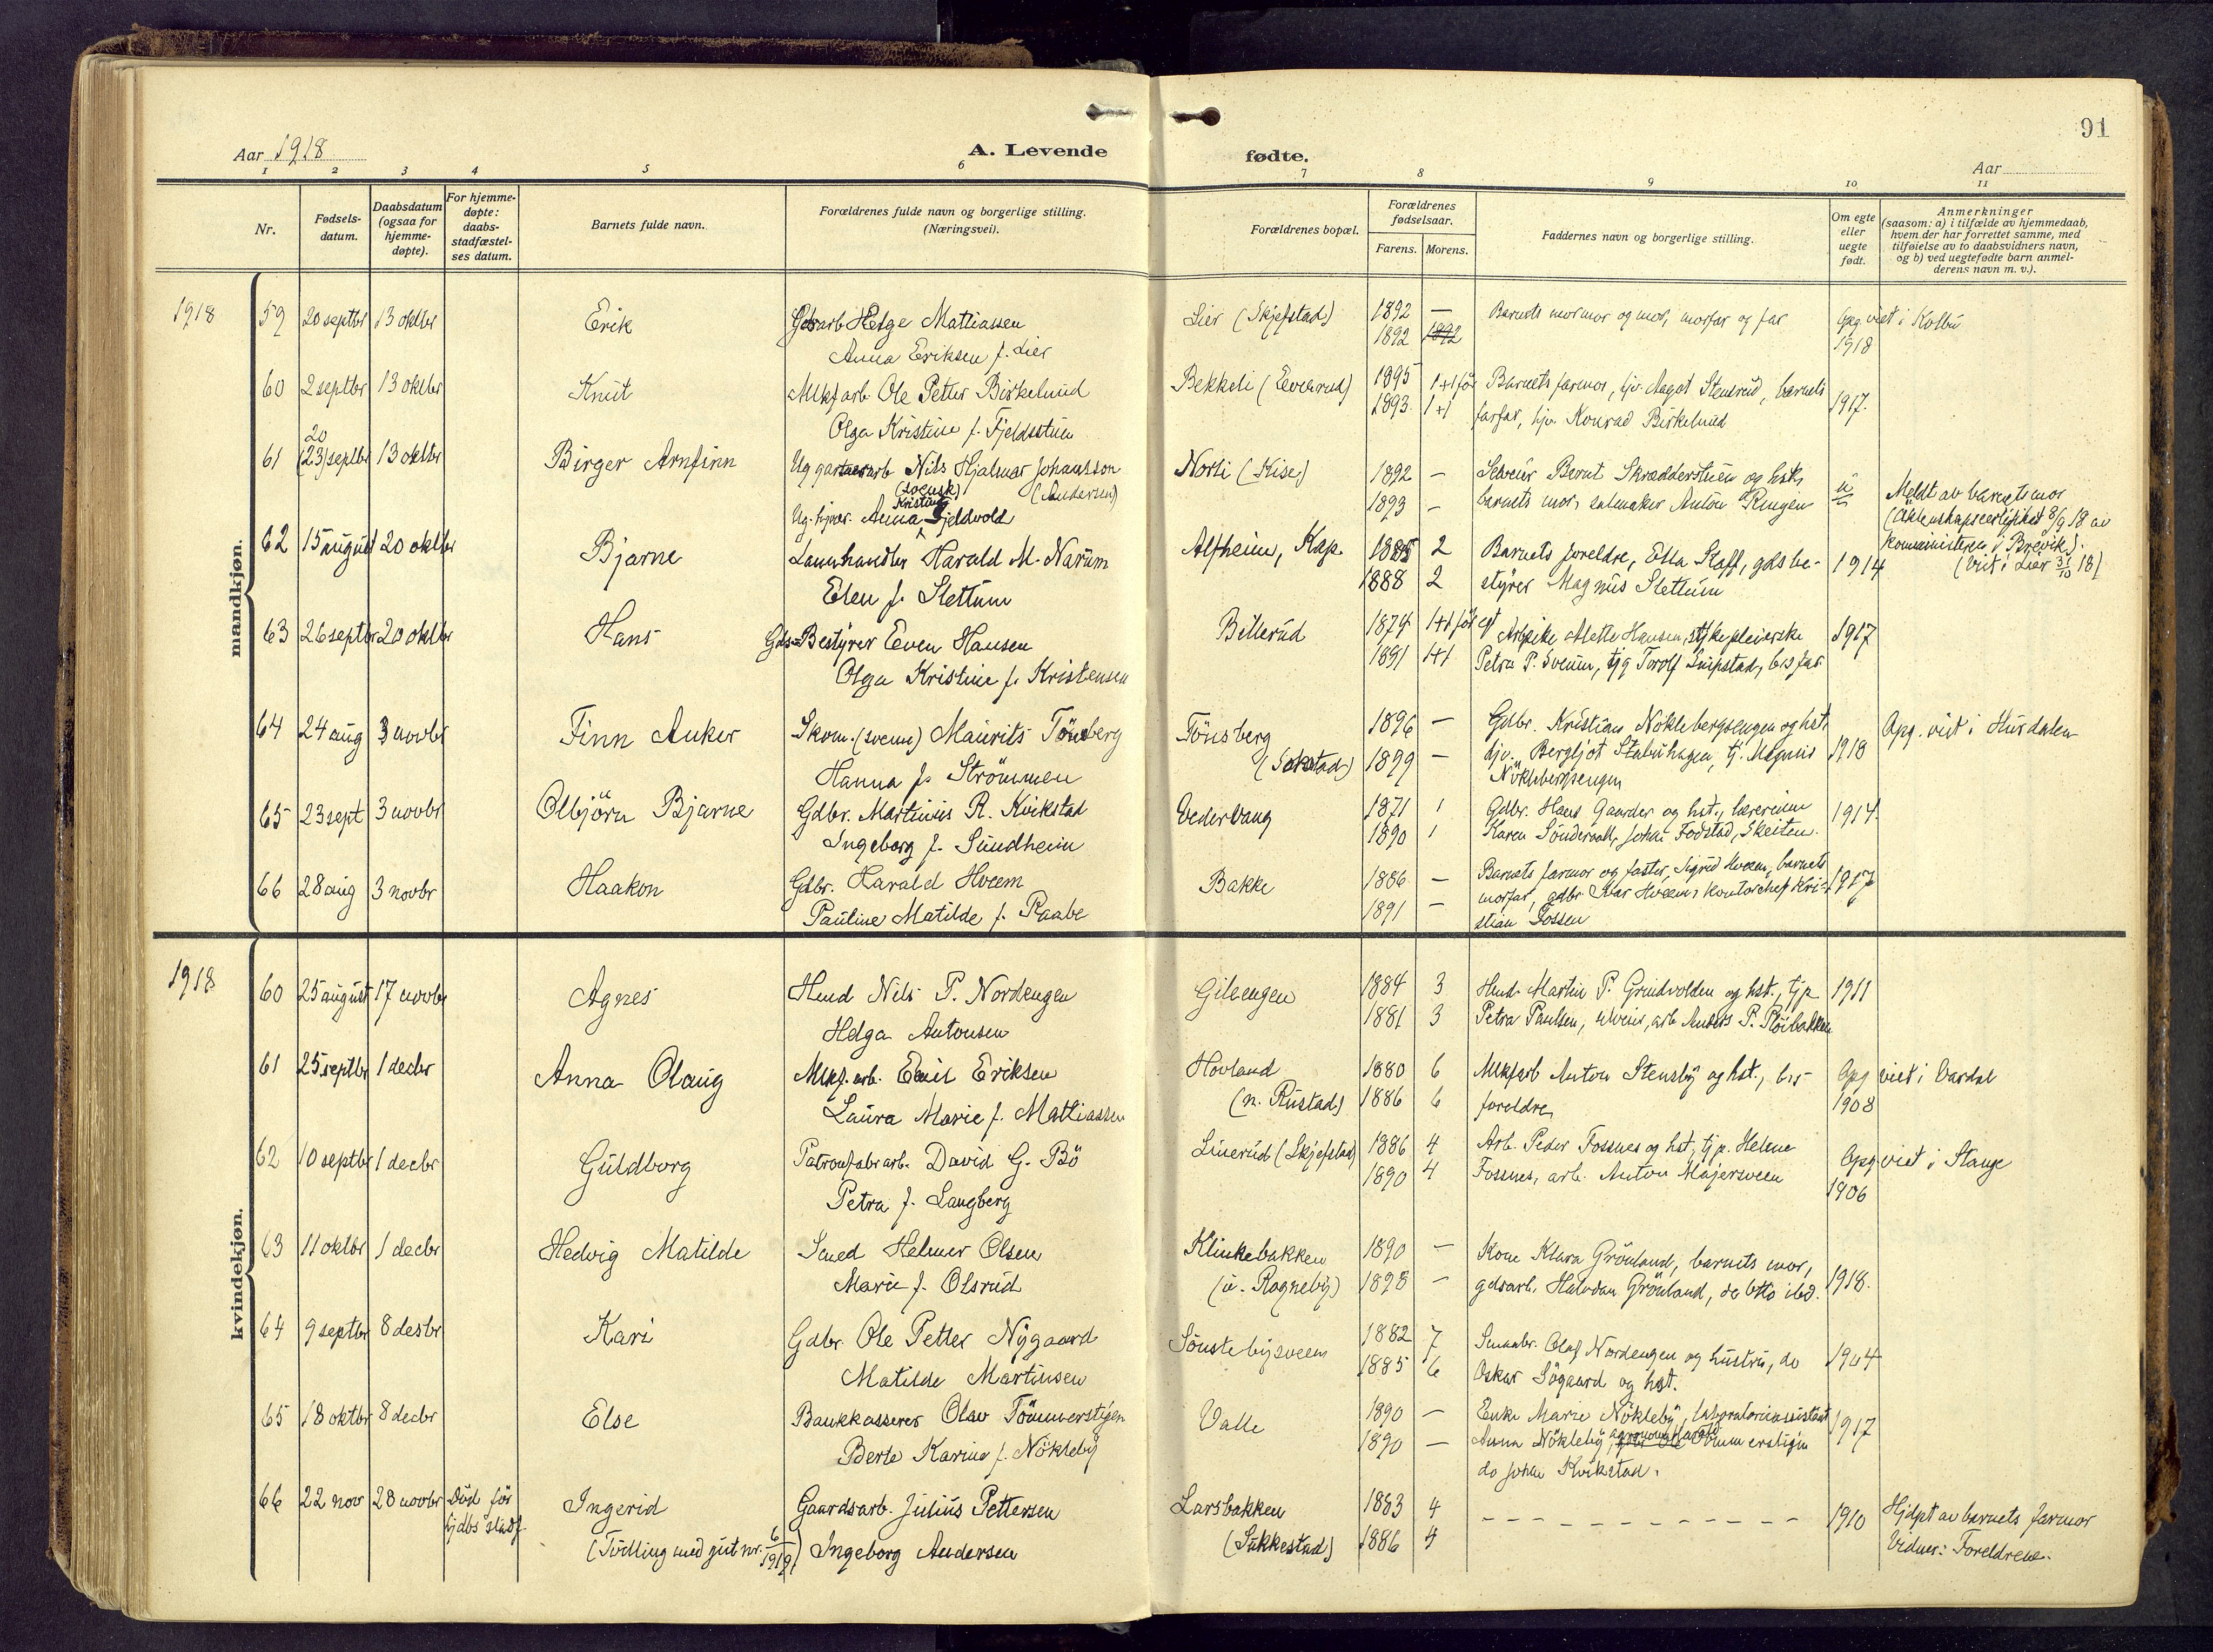 91
Aar 1918
A. Levende fødte.
Aar
1 2 3 4 5 6 7 8 9 10 11
Nr.
Fødsels-datum.
Daabsdatum (ogsaa for hjemme-døpte).
For hjemme-døpte: daabs-stadfæstel-ses datum.
Barnets fulde navn.
Forældrenes fulde navn og borgerlige stilling. (Næringsvei).
Forældrenes bopæl.
Forældrenes fødselsaar.
Farens. Morens.
Faddernes navn og borgerlige stilling.
Om egte eller uegte født.
Anmerkninger (saasom: a) i tilfælde av hjemmedaab, hvem der har forrettet samme, med tilføielse av to daabsvidners navn, og b) ved uegtefødte barn anmel-derens navn m. v.).
mandkjøn.
1918 59 20 septbr 13 oktbr Erik Gdsarb Helge Mattiassen Lier (Skjefstad) 1892 — Barnets mormor og mor, morfar og far Gpg. viet i Kolbu
Anna Eriksen f. Lier 1892 1892 1918
60 2 septbr 13 oktbr Knut Mkf arb. Ole Petter Birkelund Bekkeli 1895 1+1 før Barnets farmor, tjv. Aagot Stensrud, barnets 1917.
Olga Kristine f. Fjeldsstuen 1893. 1+1 farfar, hjv. Konrad Birkelund
61 20 (23) septbr 13 oktbr Birger Arnfinn Ug gartnerarb Nils Hjalmar Johansson Norli (Kise) 1892 — Bernt Skrædderstuen og hst, u
(svensk) (Andersen)
Ug. hjvær. Anna Kristine Fjeldvold 1893 — barnets mor, salmaker Anton Ringen Meldt av barnets mor
(Äktenskapscertifikat 8/9 18 av
komministeren i Brevik).
(Viet i Lier 31/10 18)
62 15 august 20 oktbr Bjarne Harald M. Narum Alfheim, Kap. 1885 2 Barnets foreldre, Etta Staff, gds be- 1914
Elen f. Slettum 1888 2 styrer Magnus Slettum
63 26 septbr 20 oktbr Hans Gds=Bestyrer Even Hansen Billerud 1874 1+1 før Mette Hansen, sykepleierske 1917
Olga Kristine f. Kristensen 1891 1+1 Petra P. Sveum, Torolf Snipstad, brs far
64 24 aug 3 novbr Finn Anker Skom. (svenn) Maurits Tönsberg Tönsberg 1896 — Gdbr. Kristian Nöklebergsengen og hst Gpg. viet i Hurdalen
Hanna f. Strömmen 1899 — hjv. Bergljot Stabuhagen, tj. Magnus 1918
Nöklebergsengen
65 23 sept 3 novbr Olbjörn Bjarne Gdbr. Martinius R. Kvikstad Vedervang 1871 1 Gdbr. Hans Gaarder og hst., lærerinne 1914.
Ingeborg f. Sundheim 1890 1 Karen Sönderaal, Johan Fodstad, Skeiten.
66 28 aug 3 novbr Haakon Gdbr. Harald Hveem Bakke 1886 — Barnets farmor og faster, Sigrid Hveem, barnets
Pauline Matilde f. Raabe 1891 — morfar, gdbr. Ivar Hveem, kontorchef Kri- 1917
stian Fossen
kvindekjøn.
1918 60 25 august 17 novbr Agnes Hmd Nils P. Nordengen Gilengen 1884 3 Hmd. Martin P. Grindvolden og hst., tjp 1911
Helga Antonsen 1881 3 Petra Paulsen, arb Anders P. Plöibakken
61 25 septbr 1 decbr Anna Olaug Mkf. arb. Emil Eriksen Hovland 1880 6 Mkfarb Anton Stensby og hst., brs Gpg viet i Vardal
Laura Marie f. Mattiassen (n. Rustad) 1886 6 foreldre, 1908
62 10 septbr 1 decbr Guldborg Patronfabrarb. David G. Bö Linerud (Skjefstad) 1886 4 Arb. Peder Fossnes og hst, tjp. Helene Gpg viet i Stange
Petra f. Langberg 1890 4 Fossnes, arb. Anton Majersveen 1906
63 11 oktbr 1 decbr Hedvig Matilde Smed Helmer Olsen Klinkebakken 1890 — Kone Klara Grönland, barnets mor,
Marie f. Olsrud (u. Rogneby) 1898 — gdsarb. Halvdan Grönland, do Otto ibd. 1918.
64 9 septbr 8 desbr Kari Gdbr. Ole Petter Nygaard Sönstebysveen 1882 7 Smaabr. Olaf Nordengen og hustru, do 1904
Matilde Martinsen 1885 6 Oskar Sögaard og hst.
65 18 oktbr 8 decbr Else Bankkasserer Olav Tömmerstigen Valle 1890 — Enke Marie Nökleby, laboratorieassistent 1917
Berte Karine f. Nökleby 1890 — Anna Nökleby, agronom Harald Tömmerstigen
do Johan Kvikstad.
66 22 nov 28 novbr Död för hjdbs stadf. Ingerid Gaardsarb. Julius Pettersen Larsbakken 1883 4 - - - - - - - - - - - - 1910 Hjdpt av barnets farmor
(Tvilling med gut nr. 6/1919) Ingeborg Andersen (Sukkestad) 1886 4 Vidner: Foreldrene.